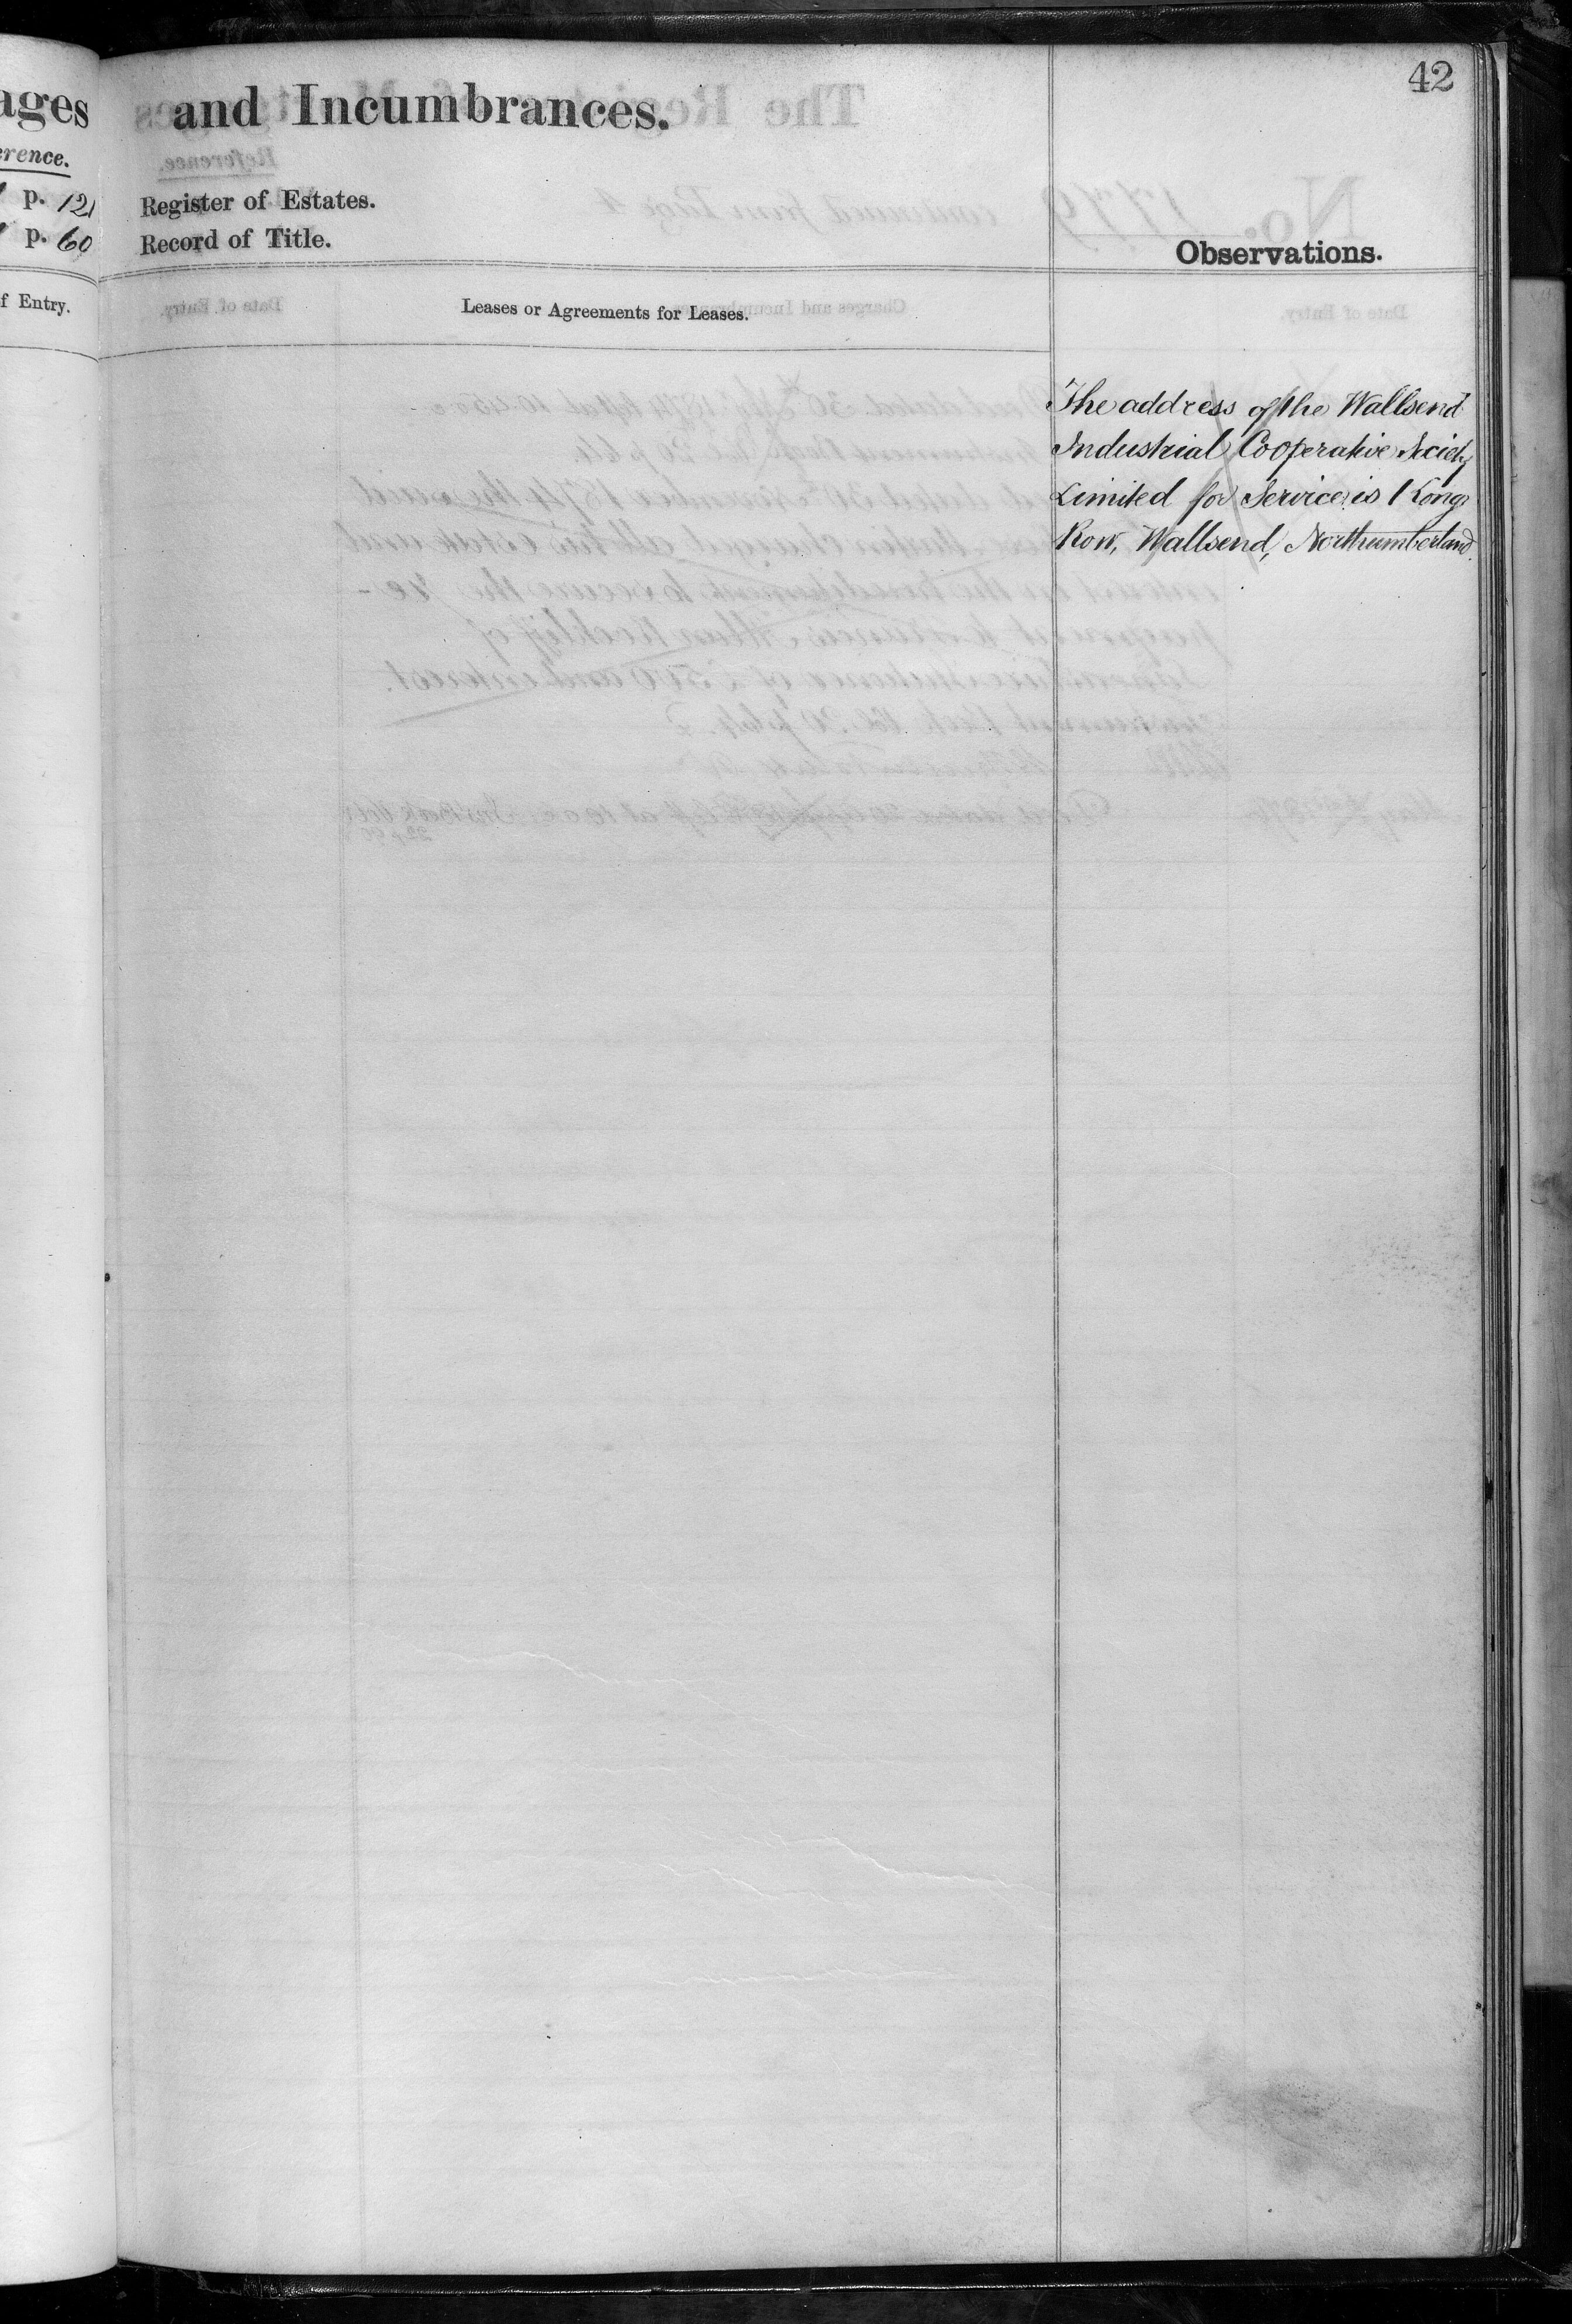 42
ages and Incumbrances.
erence.
p. 121 Register of Estates.
p. 60 Record of Title.
Observations.
f Entry.
Leases or Agreements for Leases.
The address of the Wallsend
Industrial Cooperative Society
Limited for Service is 1 Long
Row, Wallsend, Northumberland.